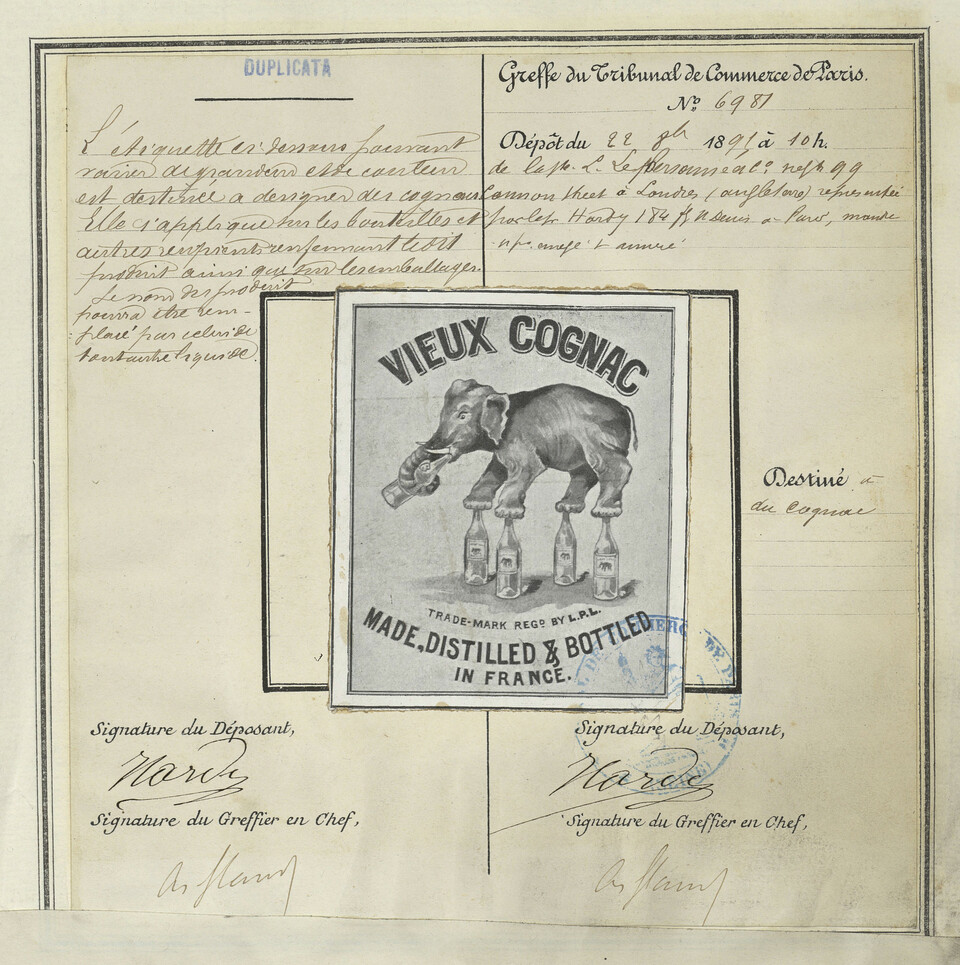 DUPLICATA
L'étiquette ci-dessous pouvant
varier de grandeur et de couleur
est destinée a designer des cognacs
Elle s'applique sur les bouteilles et
autres recipients renfermant ledit
produit ainsi que sur les emballages.
Le nom du produit
pourra être rem-
placé par celui de
tout autre liquide.
Greffe du Tribunal de Commerce de Paris.
No 6981
Dépôt du 22 1891 à 10h.
de la Sté L. Lepersonne & Co 99
Cannon Street à Londres (angleterre) representée
par le Sr Hardy 184 St Denis a Paris,
VIEUX COGNAC
TRADE-MARK REGD BY L.P.L.
MADE, DISTILLED & BOTTLED
IN FRANCE.
Destiné à
du cognac
DE COMMERCE DE
Signature du Déposant,
Hardy
Signature du Greffier en Chef,
Signature du Déposant,
Hardy
Signature du Greffier en Chef,